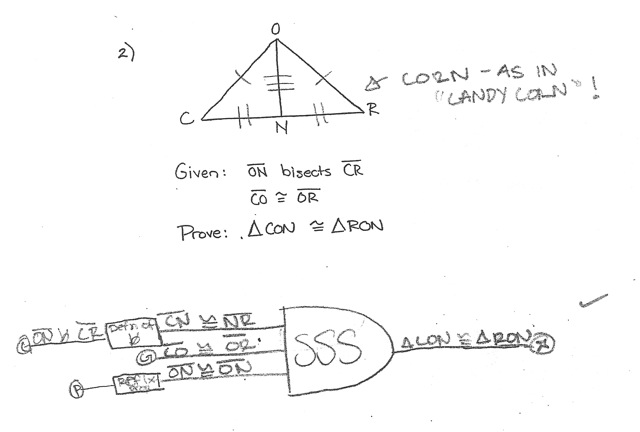 2)
O
C
N
R
CORN - AS IN
"CANDY CORN"!
Given: ON bisects CR
CO ≅ OR
Prove: ΔCON ≅ ΔRON
G ON b CR
Defn of
b
CN ≅ NR
G CO ≅ OR
P
Reflx
ON ≅ ON
SSS
ΔCON ≅ ΔRON